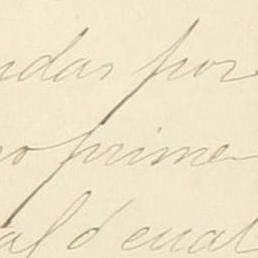 ndas por
no prime
al d cual